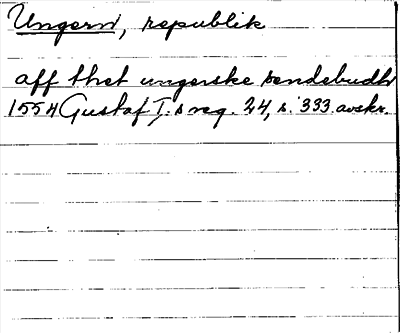 Ungern, republik
aff thet ungerske sendebudh
1554 Gustaf I:s reg. 24, s. 333. avskr.